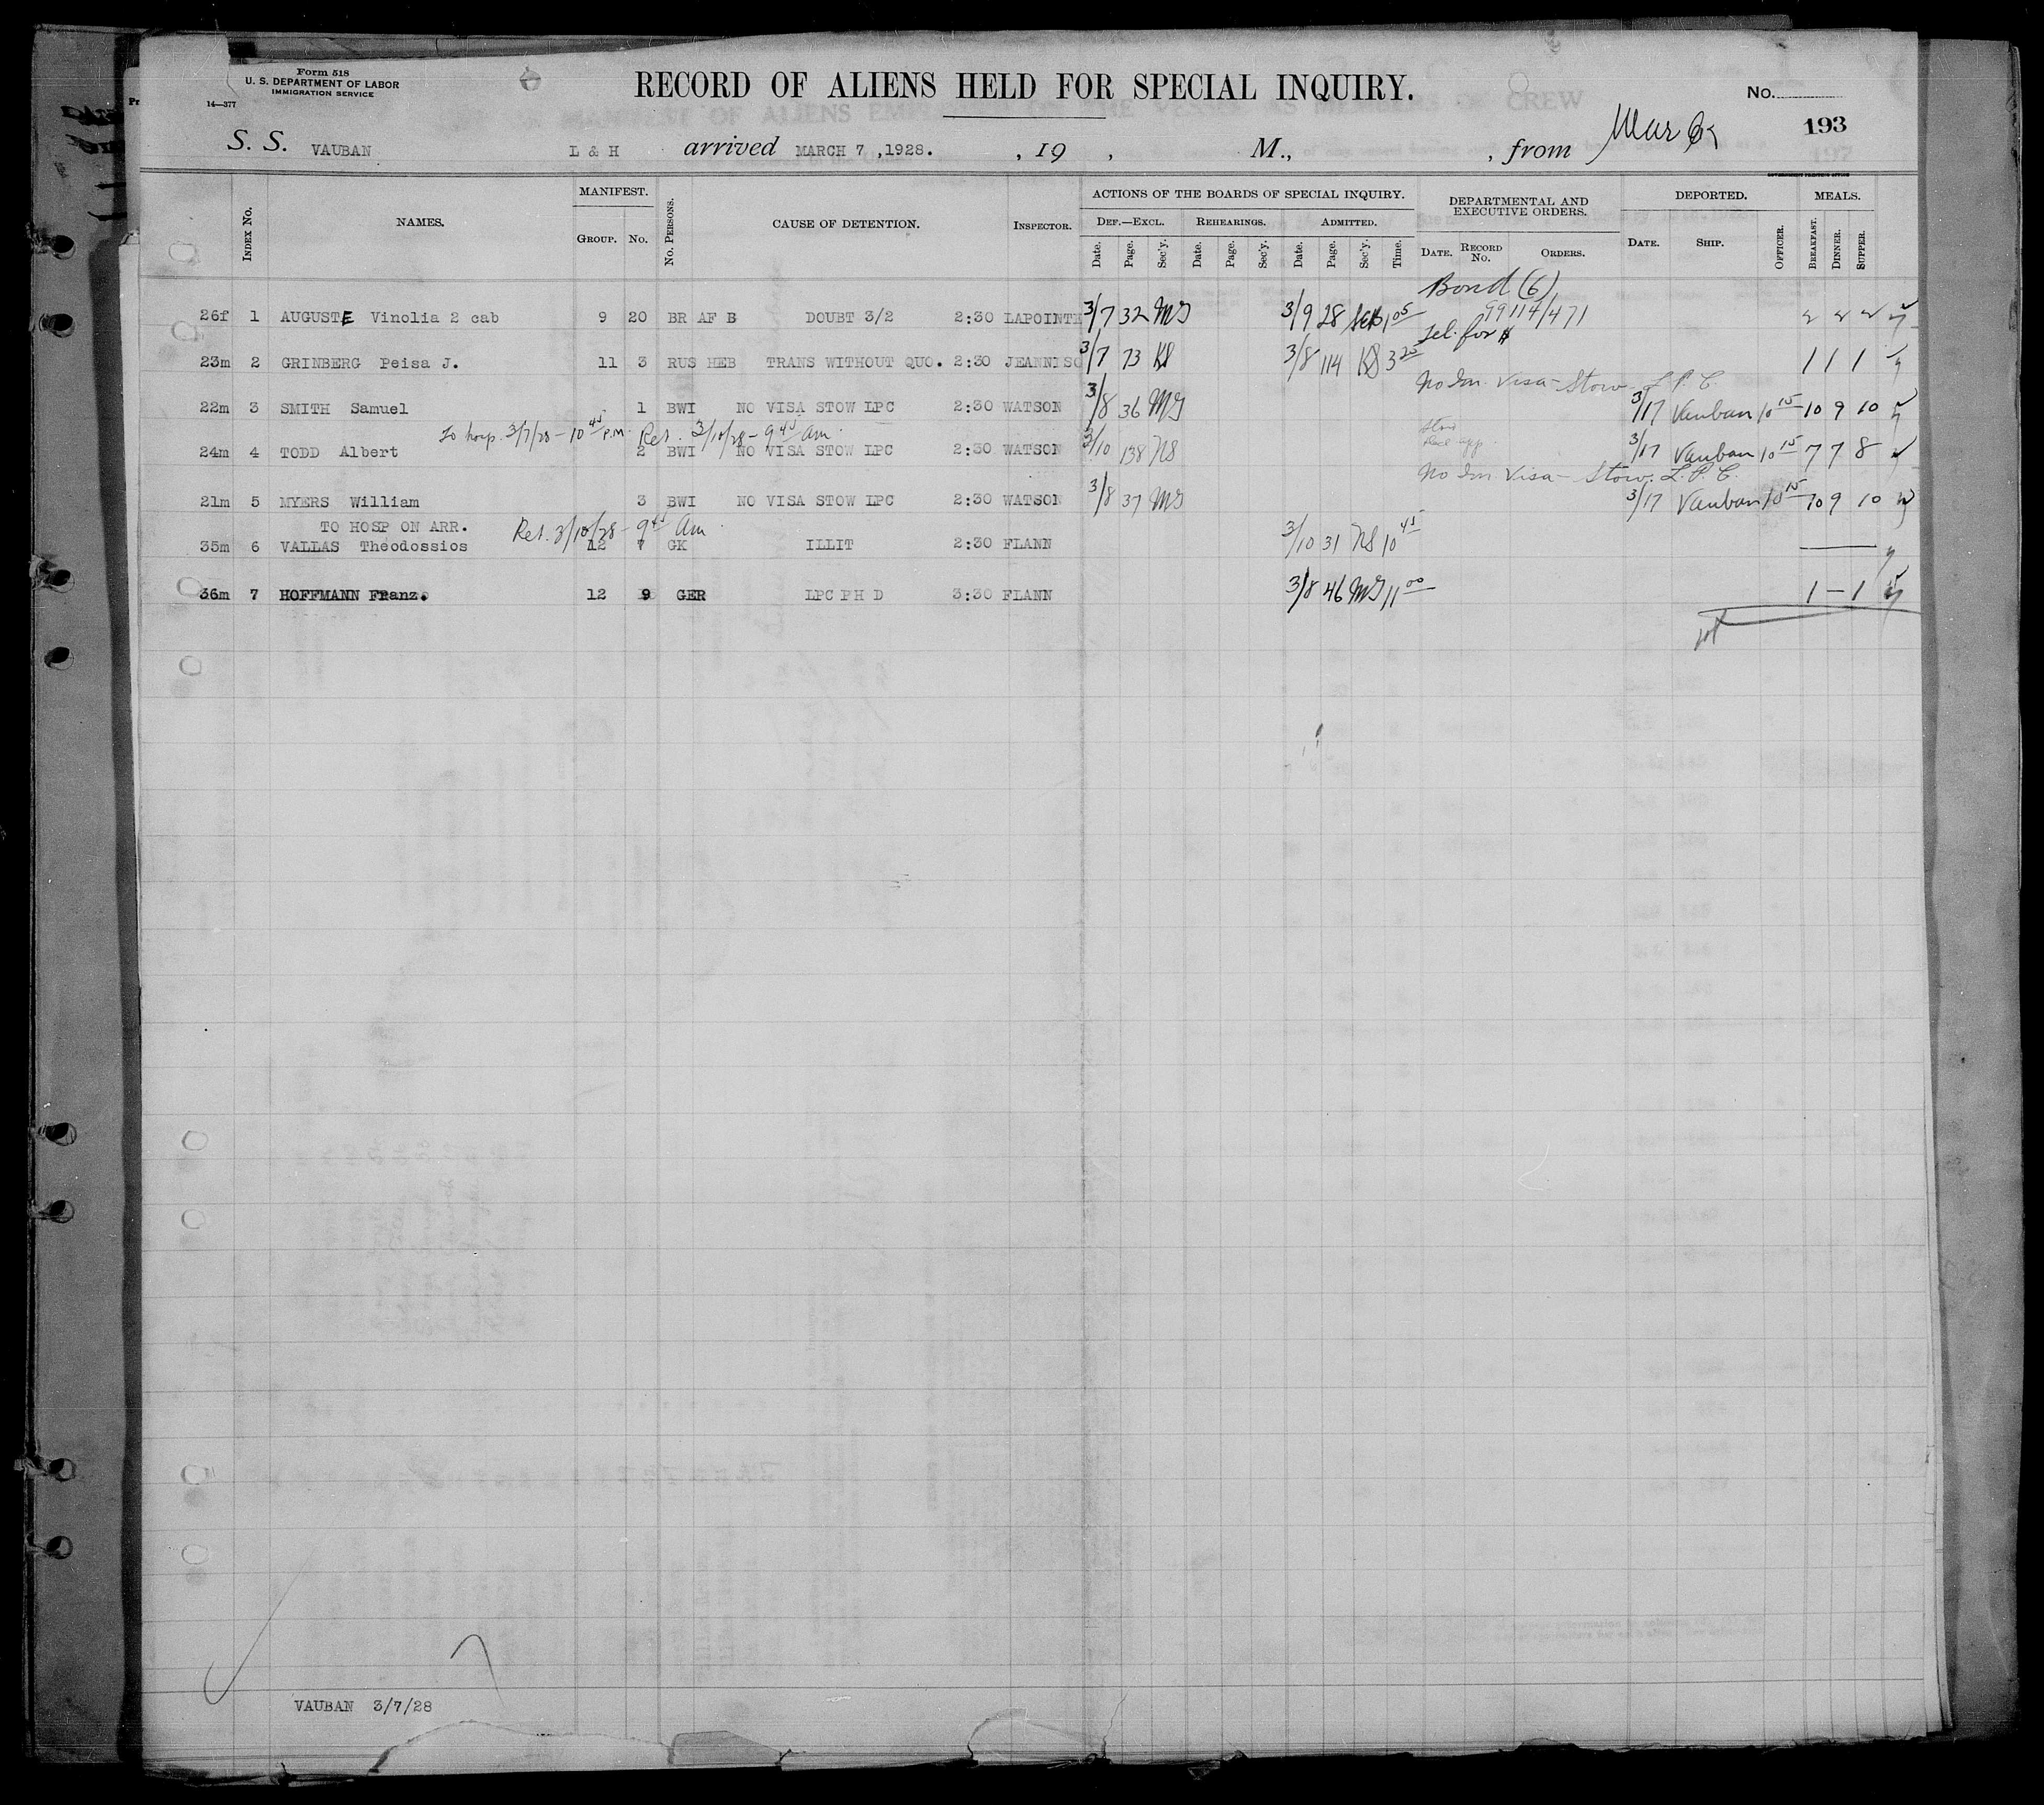 Form 518
U. S. DEPARTMENT OF LABOR
IMMIGRATION SERVICE
14—377
RECORD OF ALIENS HELD FOR SPECIAL INQUIRY.
No.
193
S. S. VAUBAN L & H arrived MARCH 7 ,1928. , 19 , M., , from
INDEX No. NAMES. MANIFEST. GROUP. No. No. PERSONS. CAUSE OF DETENTION. INSPECTOR. ACTIONS OF THE BOARDS OF SPECIAL INQUIRY. DEF.—EXCL. Date. Page. Sec'y. REHEARINGS. Date. Page. Sec'y. ADMITTED. Date. Page. Sec'y. Time. DEPARTMENTAL AND EXECUTIVE ORDERS. DATE. RECORD No. ORDERS. DEPORTED. DATE. SHIP. OFFICER. MEALS. BREAKFAST. DINNER. SUPPER.
Bond (6)
26f 1 AUGUSTE Vinolia 2 cab 9 20 BR AF B DOUBT 3/2 2:30 LAPOINTE 3/7 32 MG 3/9 28 1 05 99114/471 2 2 2
Tel. for $
23m 2 GRINBERG Peisa J. 11 3 RUS HEB TRANS WITHOUT QUO. 2:30 JEANNISO 3/7 73 KS 3/8 114 KS 3 25 1 1 1
No Im. Visa – Stow – L.P.C.
22m 3 SMITH Samuel 1 BWI NO VISA STOW LPC 2:30 WATSON 3/8 36 MG 3/17 Vauban 10 15 10 9 10
To hosp. 3/7/28 – 10 45 P.M. Ret. 3/10/28 – 9 45 am.
24m 4 TODD Albert 2 BWI NO VISA STOW LPC 2:30 WATSON 3/10 138 NS 3/17 Vauban 10 15 7 7 8
No Im Visa – Stow. L.P.C.
21m 5 MYERS William 3 BWI NO VISA STOW LPC 2:30 WATSON 3/8 37 MG 3/17 Vauban 10 15 10 9 10
TO HOSP ON ARR. Ret. 3/10/28 – 9 45 am.
35m 6 VALLAS Theodossios 12 7 GK ILLIT 2:30 FLANN 3/10 31 NS 10 45
36m 7 HOFFMANN Franz. 12 9 GER LPC PH D 3:30 FLANN 3/8 46 MG 11 00 1 – 1
VAUBAN 3/7/28